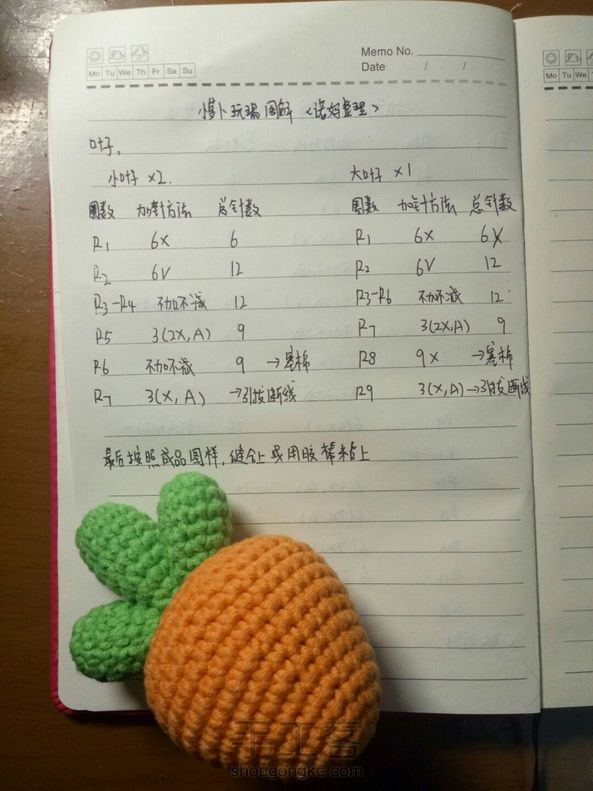 Memo No.
Mo Tu We Th Fr Sa Su
Date / /
小萝卜玩偶图解 <诺妈整理>
叶子.
小叶子 ×2.
大叶子 ×1
圈数 加针方法 总针数
圈数 加针方法 总针数
R1 6X 6
R1 6X 6X
R2 6V 12
R2 6V 12
R3-R4 不加不减 12
R3-R6 不加不减 12
R5 3(2X,A) 9
R7 3(2X,A) 9
R6 不加不减 9 →塞棉
R8 9X →塞棉
R7 3(X,A) →引拔断线
R9 3(X,A)→引拔断线
最后按照成品图样,缝合上或用胶棒粘上
Mo Tu We
手工客
shougongke.com